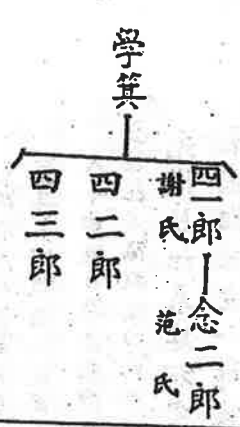 學箕
四一郎
謝氏
念二郎
范氏
四二郎
四三郎